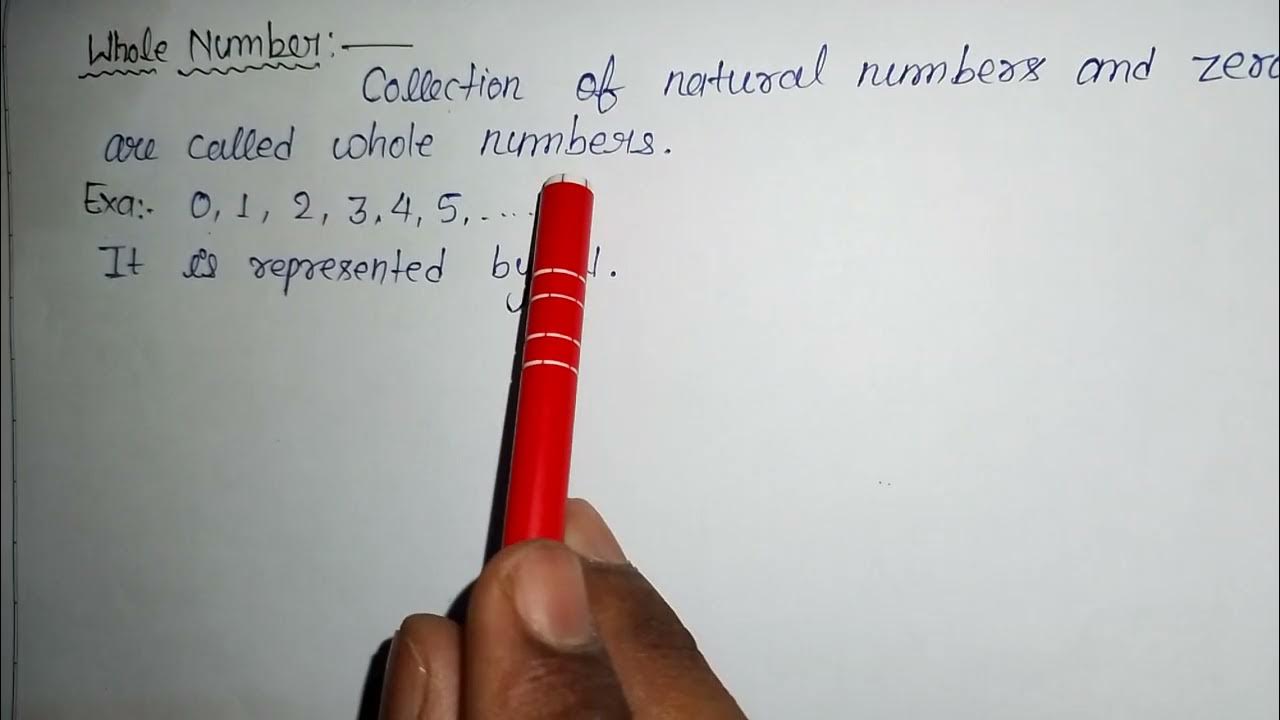 Whole Number:-
Collection of natural numbers and zero
are called whole numbers.
Exa:- 0, 1, 2, 3, 4, 5, .....
It is represented by